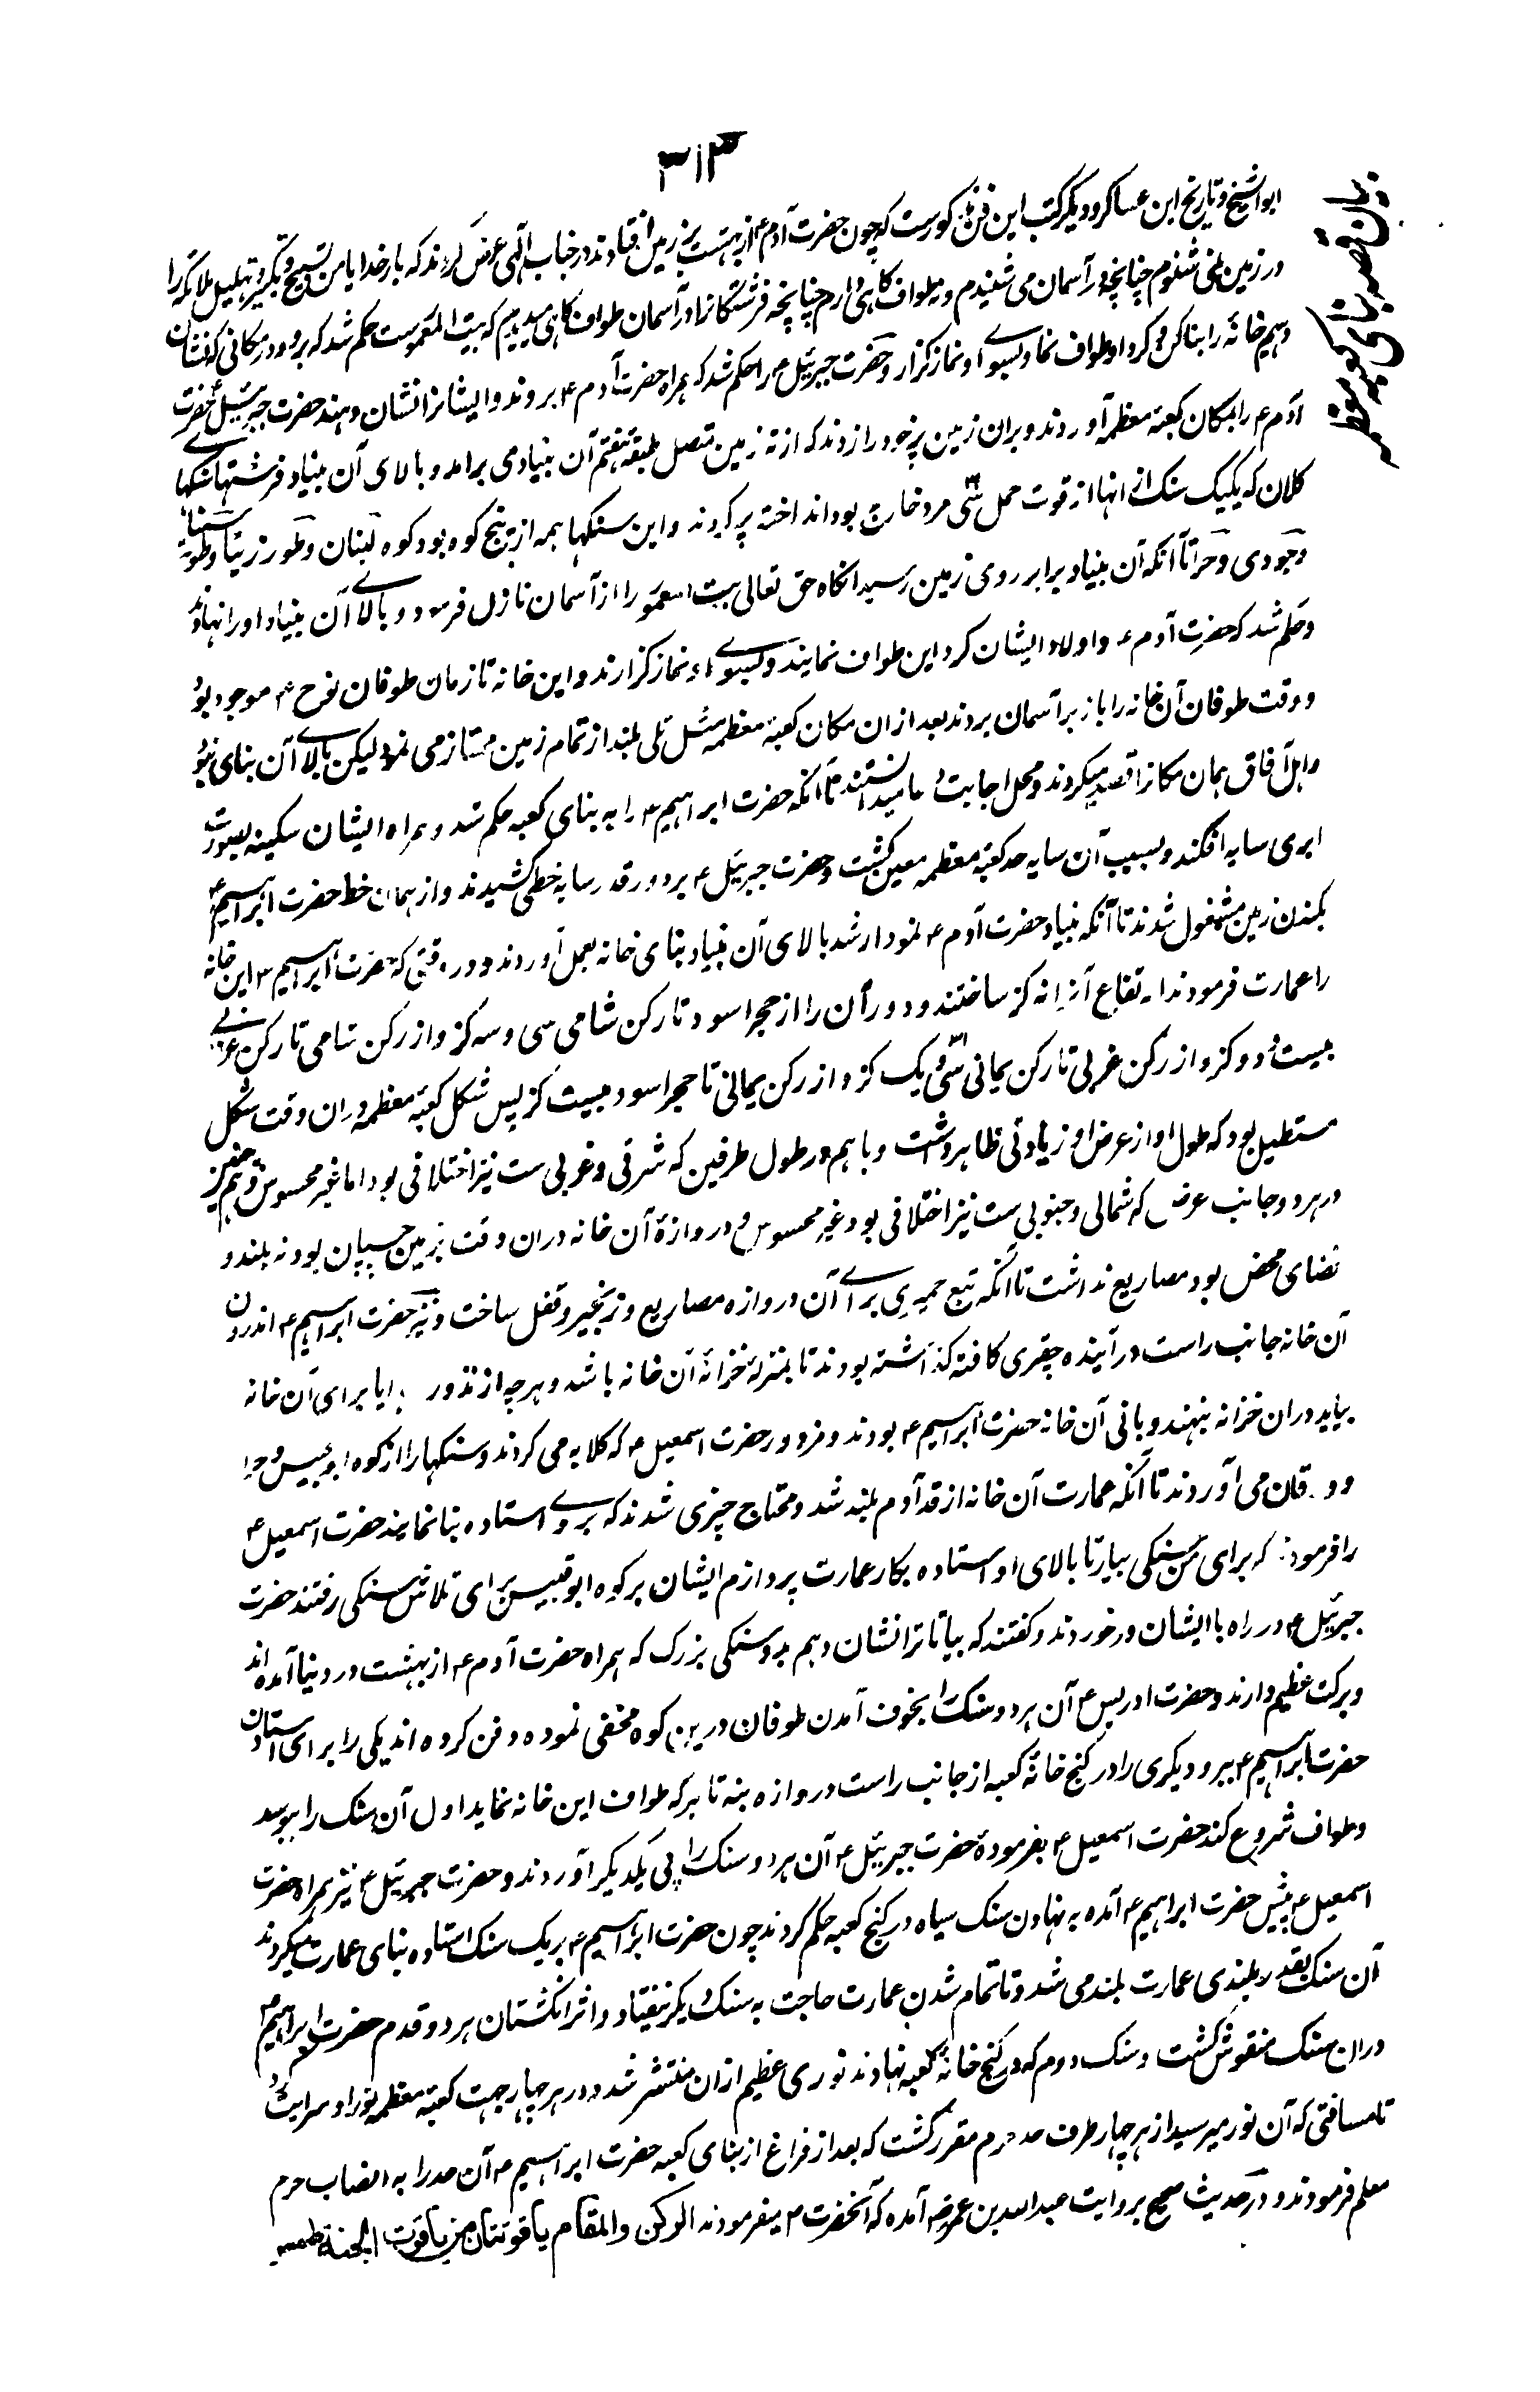 ۳۱۳
بیان قصه بنای کعبه معظمه
ابوالشیخ و تاریخ ابن عساکر و دیگر کتب این فن مذکورست که چون حضرت آدم ؑ از بهشت بر زمین افتادند در جناب الٰهی عرض کردند که بار خدایا من تسبیح و تکبیر و تهلیل ملائکه را
در زمین نمی شنوم چنانچه در آسمان می شنیدم و نه طواف گاهی دارم چنانچه فرشتگانرا در آسمان طواف گاهی میدیدیم که بیت المعمورست حکم شد که برو و در مکانی که نشان
دهیم خانه را بنا کن و گرد او طواف نما و بسوی او نماز گزار و حضرت جبرئیل ؑ را حکم شد که همراه حضرت آدم ؑ بروند و ایشانرا نشان دهند حضرت جبرئیل ؑ حضرت
آدم ؑ را بمکان کعبه معظمه آوردند و بران زمین پر خود را زدند که از ته زمین متصل طبقه هفتم آن بنیادی برامد و بالای آن بنیاد فرشتها سنگهای
کلان که یکیک سنگ از انها از قوت حمل سی مرد خارج بود انداخته پر کردند و این سنگها همه از پنج کوه بود کوه لبنان و طور زیتا و طور سینا
و جودی و حرا تا آنکه آن بنیاد برابر روی زمین رسید انگاه حق تعالی بیت المعمور را از آسمان نازل فرمود و بالای آن بنیاد او را نهادند
و حکم شد که حضرت آدم ؑ و اولاد ایشان گرد این طواف نمایند و بسوی او نماز گزارند و این خانه تا زمان طوفان نوح ؑ موجود بود
و وقت طوفان آن خانه را باز بر آسمان بردند بعد ازان مکان کعبه معظمه مثل تلی بلند از تمام زمین ممتاز می نمود لیکن بالای آن بنای نبود
و اهل آفاق همان مکانرا قصد میکردند و محل اجابت دعا میدانستند تا آنکه حضرت ابراهیم ؑ را به بنای کعبه حکم شد و همراه ایشان سکینه بصورت
ابری سایه افکند و بسبب آن سایه حد کعبه معظمه معین گشت و حضرت جبرئیل ؑ بردور قدر سایه خطی کشیدند و از همان خط حضرت ابراهیم ؑ
بکندن زمین مشغول شدند تا آنکه بنیاد حضرت آدم ؑ نمودار شد بالای آن بنیاد بنای خانه بعمل آوردند و در وقتی که حضرت ابراهیم ؑ این خانه
را عمارت فرمودند ارتفاع آنرا نه گز ساختند و دور آن را از حجر اسود تا رکن شامی سی و سه گز و از رکن شامی تا رکن غربی
بیست و دو گز و از رکن غربی تا رکن یمانی سی و یک گز و از رکن یمانی تا حجر اسود بیست گز پس شکل کعبه معظمه دران وقت شکل
مستطیل بود که طول او از عرض او زیادتی ظاهر داشت و باهم در طول طرفین که شرقی و غربی ست نیز اختلافی بود اما غیر محسوس و همچنین
در هر دو جانب عرض که شمالی و جنوبی ست نیز اختلافی بود غیر محسوس و دروازهٔ آن خانه دران وقت بزمین چسپان بود نه بلند و
فضای محض بود مصاریع نداشت تا آنکه تبع حمیری برای آن دروازه مصاریع و زنجیر و قفل ساخت و نیز حضرت ابراهیم ؑ اندرون
آن خانه جانب راست درآینده چقری کافته گذاشته بودند تا بمنزلهٔ خزانهٔ آن خانه باشد و هر چه از نذور و هدایا برای آن خانه
بیاید دران خزانه بنهند و بانی آن خانه حضرت ابراهیم ؑ بودند و مزدور حضرت اسمعیل ؑ که گلابه می کردند و سنگها را از کوه ابوقبیس و حرا
و ورقان می آوردند تا آنکه عمارت آن خانه از قد آدم بلند شد و محتاج چیزی شدند که بروی استاده بنا نمایند حضرت اسمعیل ؑ
را فرمودند که برای من سنگی بیار تا بالای او استاده بکار عمارت پردازم ایشان بر کوه ابوقبیس برای تلاش سنگی رفتند حضرت
جبرئیل ؑ در راه با ایشان درخوردند و گفتند که بیا تا ترا نشان دهم بدو سنگی بزرگ که همراه حضرت آدم ؑ از بهشت در دنیا آمده اند
و برکت عظیم دارند و حضرت ادریس ؑ آن هر دو سنگ را بخوف آمدن طوفان درین کوه مخفی نموده دفن کرده اند یکی را برای استادن
حضرت ابراهیم ؑ ببر و دیگری را در کنج خانهٔ کعبه از جانب راست دروازه بنه تا هر که طواف این خانه نماید اول آن سنگ را ببوسد
و طواف شروع کند حضرت اسمعیل ؑ بفرمودهٔ حضرت جبرئیل ؑ آن هر دو سنگ را پی یکدیگر آوردند و حضرت جبرئیل ؑ نیز همراه حضرت
اسمعیل ؑ پیش حضرت ابراهیم ؑ آمده به نهادن سنگ سیاه در کنج کعبه حکم کردند چون حضرت ابراهیم ؑ بر یک سنگ استاده بنای عمارت میکردند
آن سنگ بقدر بلندی عمارت بلند می شد و تا تمام شدن عمارت حاجت به سنگ دیگر نیفتاد و اثر انگشتان هر دو قدم حضرت ابراهیم ؑ
دران سنگ منقوش گشت و سنگ دوم که در کنج خانهٔ کعبه نهادند نوری عظیم ازان منتشر شد و در هر چهار جهت کعبه معظمه نور او سرایت کرد
تا مسافتی که آن نور میرسید از هر چهار طرف حد حرم مقرر گشت که بعد از فراغ از بنای کعبه حضرت ابراهیم ؑ آن حد را به انصاب حرم
معلم فرمودند و در حدیث صحیح بروایت عبدالله بن عمرو رض آمده که آنحضرت ؐ میفرمودند الرکن والمقام یاقوتتان من یاقوت الجنة طمس